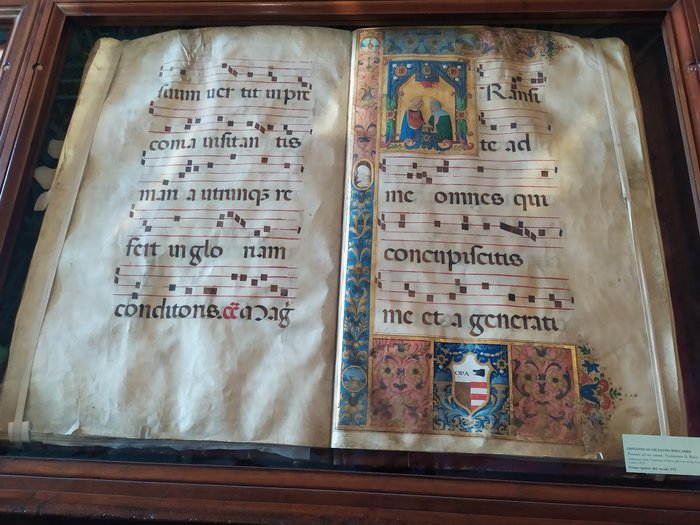 suum uer tit in pre
conia insitan tis
man a utrunqz re
fert in glo riam
conditoris. a Mag
Ransi
te ad
me omnes qui
concupiscitis
me et a generati
OPA
GIOVANNI DI GIULIANO BOCCARDI
Primo quarto del secolo XVI